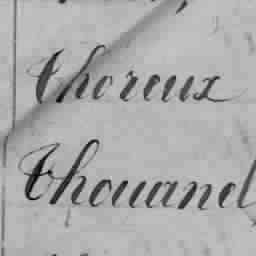 Thoreux
Thouanel